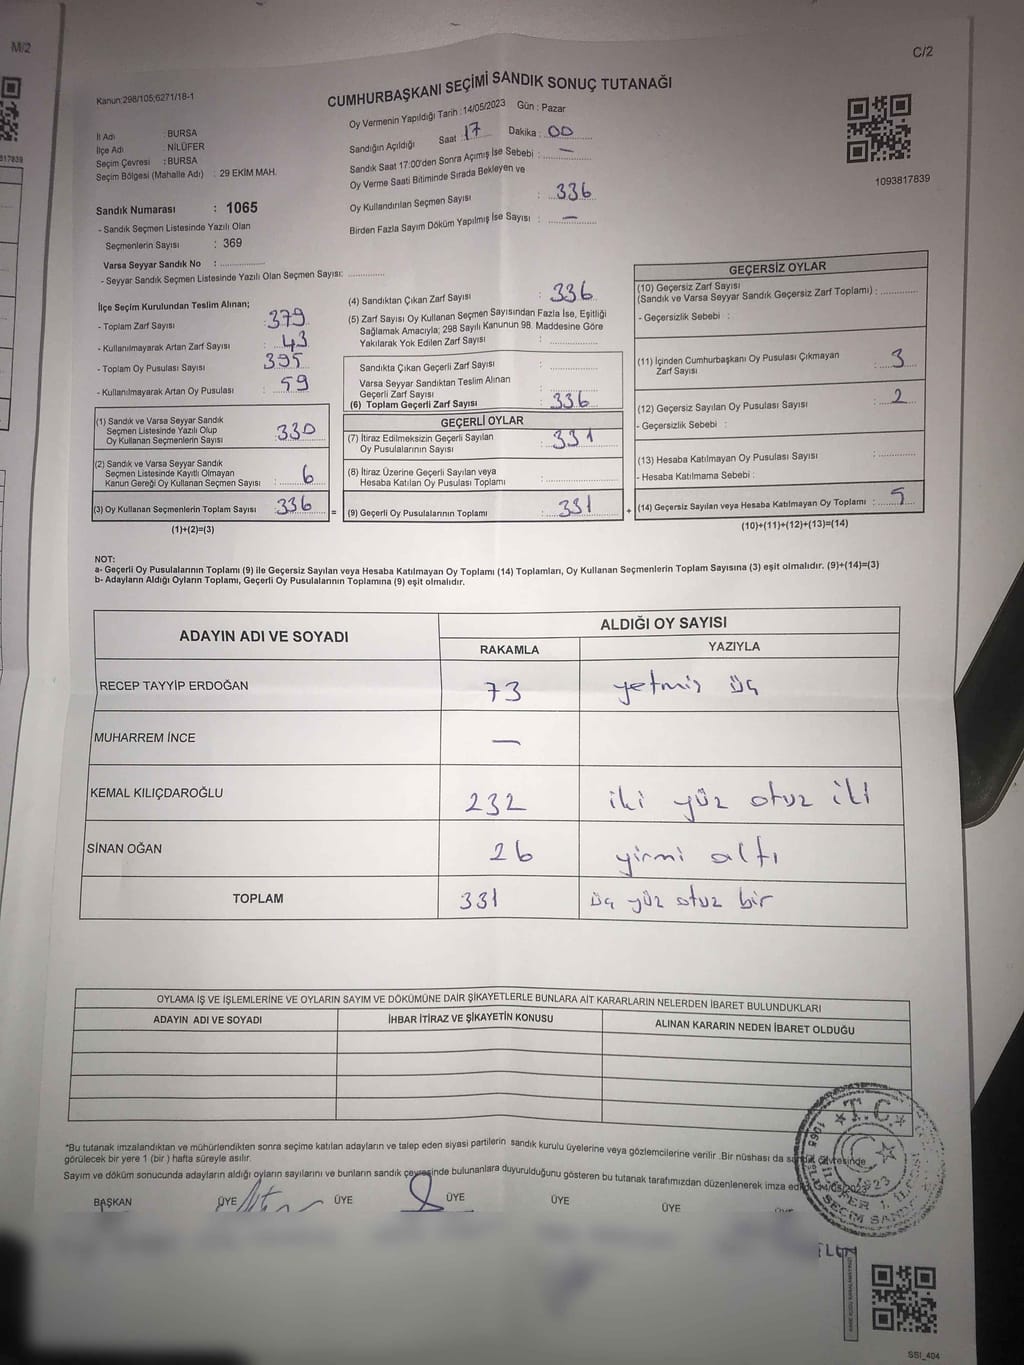 M/2
C/2
Kanun:298/105;6271/18-1
CUMHURBAŞKANI SEÇİMİ SANDIK SONUÇ TUTANAĞI
Oy Vermenin Yapıldığı Tarih : 14/05/2023 Gün : Pazar
İl Adı : BURSA
İlçe Adı : NİLÜFER
Seçim Çevresi : BURSA
Seçim Bölgesi (Mahalle Adı) : 29 EKİM MAH.
Sandığın Açıldığı Saat 17 Dakika : 00
Sandık Saat 17:00'den Sonra Açımış İse Sebebi : —
Oy Verme Saati Bitiminde Sırada Bekleyen ve
Oy Kullandırılan Seçmen Sayısı : 336
Birden Fazla Sayım Döküm Yapılmış İse Sayısı : —
1093817839
Sandık Numarası : 1065
- Sandık Seçmen Listesinde Yazılı Olan
Seçmenlerin Sayısı : 369
Varsa Seyyar Sandık No : ..............
- Seyyar Sandık Seçmen Listesinde Yazılı Olan Seçmen Sayısı: ............
İlçe Seçim Kurulundan Teslim Alınan;
- Toplam Zarf Sayısı : 379
- Kullanılmayarak Artan Zarf Sayısı : 43
- Toplam Oy Pusulası Sayısı : 395
- Kullanılmayarak Artan Oy Pusulası : 59
(1) Sandık ve Varsa Seyyar Sandık
Seçmen Listesinde Yazılı Olup
Oy Kullanan Seçmenlerin Sayısı : 330
(2) Sandık ve Varsa Seyyar Sandık
Seçmen Listesinde Kayıtlı Olmayan
Kanun Gereği Oy Kullanan Seçmen Sayısı : 6
(3) Oy Kullanan Seçmenlerin Toplam Sayısı : 336
(1)+(2)=(3)
(4) Sandıktan Çıkan Zarf Sayısı : 336
(5) Zarf Sayısı Oy Kullanan Seçmen Sayısından Fazla İse, Eşitliği
Sağlamak Amacıyla; 298 Sayılı Kanunun 98. Maddesine Göre
Yakılarak Yok Edilen Zarf Sayısı : ..............
Sandıkta Çıkan Geçerli Zarf Sayısı : ..............
Varsa Seyyar Sandıktan Teslim Alınan
Geçerli Zarf Sayısı : ..............
(6) Toplam Geçerli Zarf Sayısı : 336
GEÇERLİ OYLAR
(7) İtiraz Edilmeksizin Geçerli Sayılan
Oy Pusulalarının Sayısı : 331
(8) İtiraz Üzerine Geçerli Sayılan veya
Hesaba Katılan Oy Pusulası Toplamı : ..............
= (9) Geçerli Oy Pusulalarının Toplamı : 331 +
GEÇERSİZ OYLAR
(10) Geçersiz Zarf Sayısı
(Sandık ve Varsa Seyyar Sandık Geçersiz Zarf Toplamı) : ............
- Geçersizlik Sebebi :
(11) İçinden Cumhurbaşkanı Oy Pusulası Çıkmayan
Zarf Sayısı : 3
(12) Geçersiz Sayılan Oy Pusulası Sayısı : 2
- Geçersizlik Sebebi :
(13) Hesaba Katılmayan Oy Pusulası Sayısı : ............
- Hesaba Katılmama Sebebi :
(14) Geçersiz Sayılan veya Hesaba Katılmayan Oy Toplamı : 5
(10)+(11)+(12)+(13)=(14)
NOT:
a- Geçerli Oy Pusulalarının Toplamı (9) ile Geçersiz Sayılan veya Hesaba Katılmayan Oy Toplamı (14) Toplamları, Oy Kullanan Seçmenlerin Toplam Sayısına (3) eşit olmalıdır. (9)+(14)=(3)
b- Adayların Aldığı Oyların Toplamı, Geçerli Oy Pusulalarının Toplamına (9) eşit olmalıdır.
ADAYIN ADI VE SOYADI ALDIĞI OY SAYISI
RAKAMLA YAZIYLA
RECEP TAYYİP ERDOĞAN 73 yetmiş üç
MUHARREM İNCE —
KEMAL KILIÇDAROĞLU 232 iki yüz otuz iki
SİNAN OĞAN 26 yirmi altı
TOPLAM 331 üç yüz otuz bir
OYLAMA İŞ VE İŞLEMLERİNE VE OYLARIN SAYIM VE DÖKÜMÜNE DAİR ŞİKAYETLERLE BUNLARA AİT KARARLARIN NELERDEN İBARET BULUNDUKLARI
ADAYIN ADI VE SOYADI İHBAR İTİRAZ VE ŞİKAYETİN KONUSU ALINAN KARARIN NEDEN İBARET OLDUĞU
*Bu tutanak imzalandıktan ve mühürlendikten sonra seçime katılan adayların ve talep eden siyasi partilerin sandık kurulu üyelerine veya gözlemcilerine verilir .Bir nüshası da sandık çevresinde
görülecek bir yere 1 (bir ) hafta süreyle asılır.
Sayım ve döküm sonucunda adayların aldığı oyların sayılarını ve bunların sandık çevresinde bulunanlara duyurulduğunu gösteren bu tutanak tarafımızdan düzenlenerek imza
BAŞKAN ÜYE ÜYE ÜYE ÜYE ÜYE
T.C.
1923
SSI_404